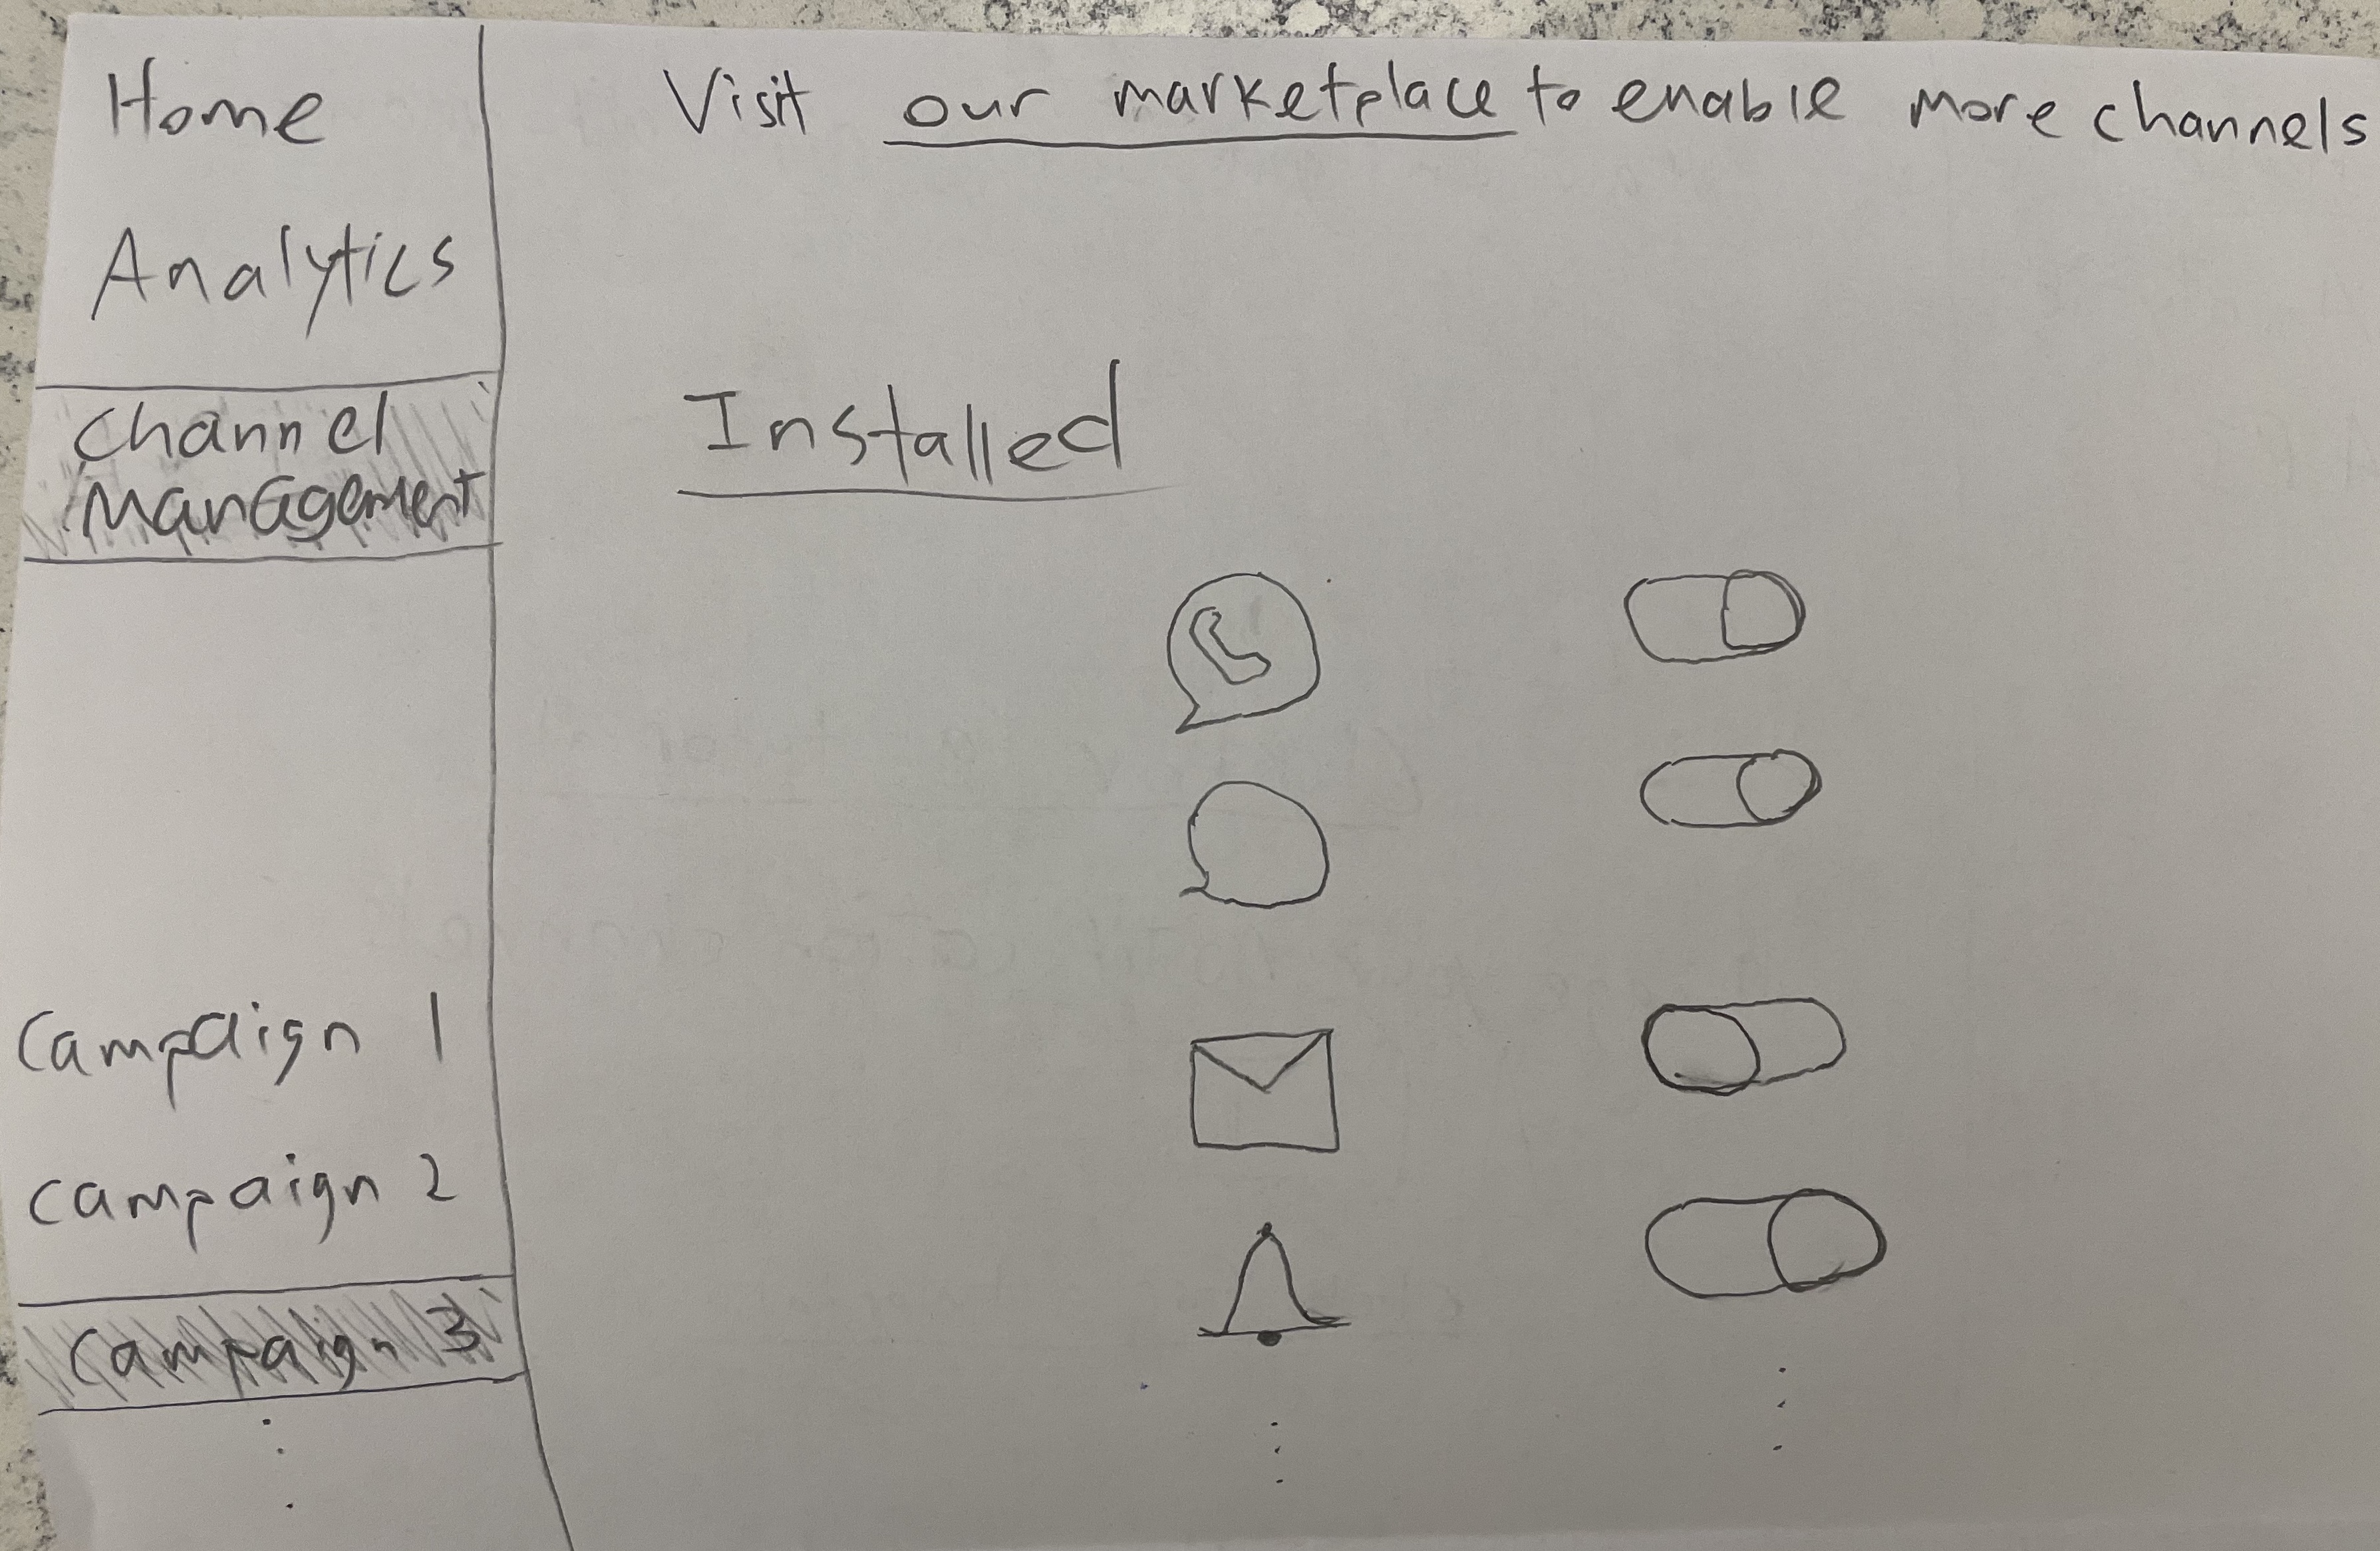 Home
Analytics
Channel
Management
Campaign 1
Campaign 2
Campaign 3
Visit our marketplace to enable more channels
Installed